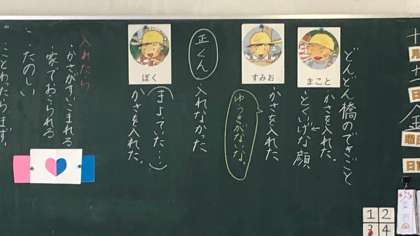 どんどん橋のできごと
まこと
かさを入れた
とくいげな顔
すみお
かさを入れた
ゆうきがないな。
正くん
入れなかった
ぼく
(まよっていた…)
かさを入れた。
入れたら
・かさがすいこまれる
・家でおこられる
・たのしい
・ことわたらます。
十
月
日
金
曜日
日直
1 2
3 4